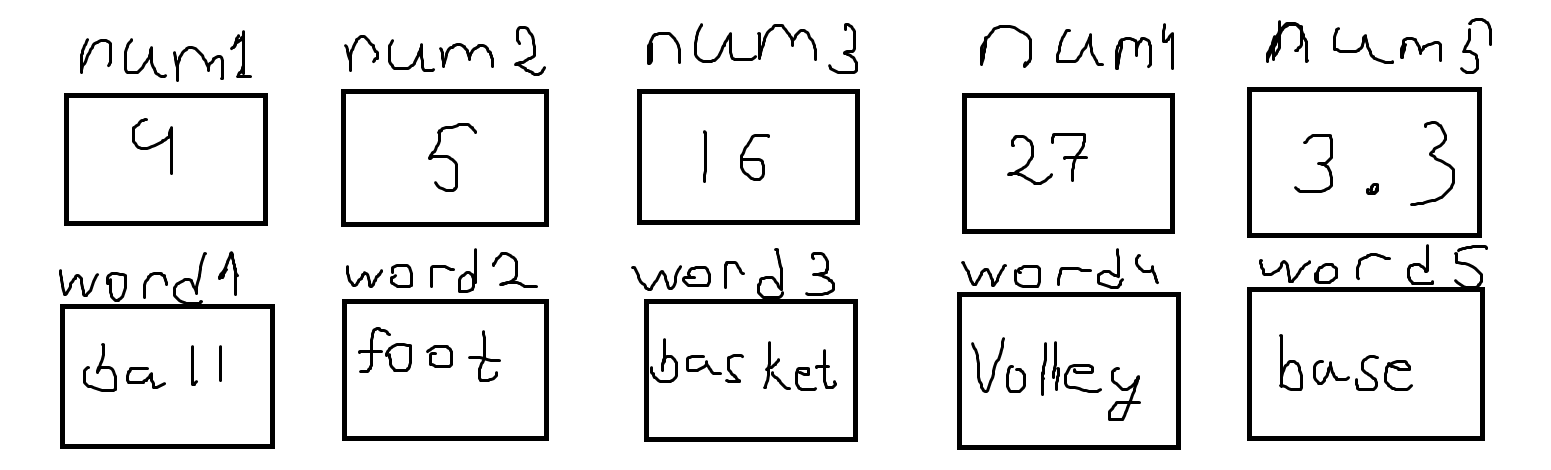 num1 num2 num3 num4 num5
4 5 16 27 3.3
word1 word2 word3 word4 word5
ball foot basket Volley base